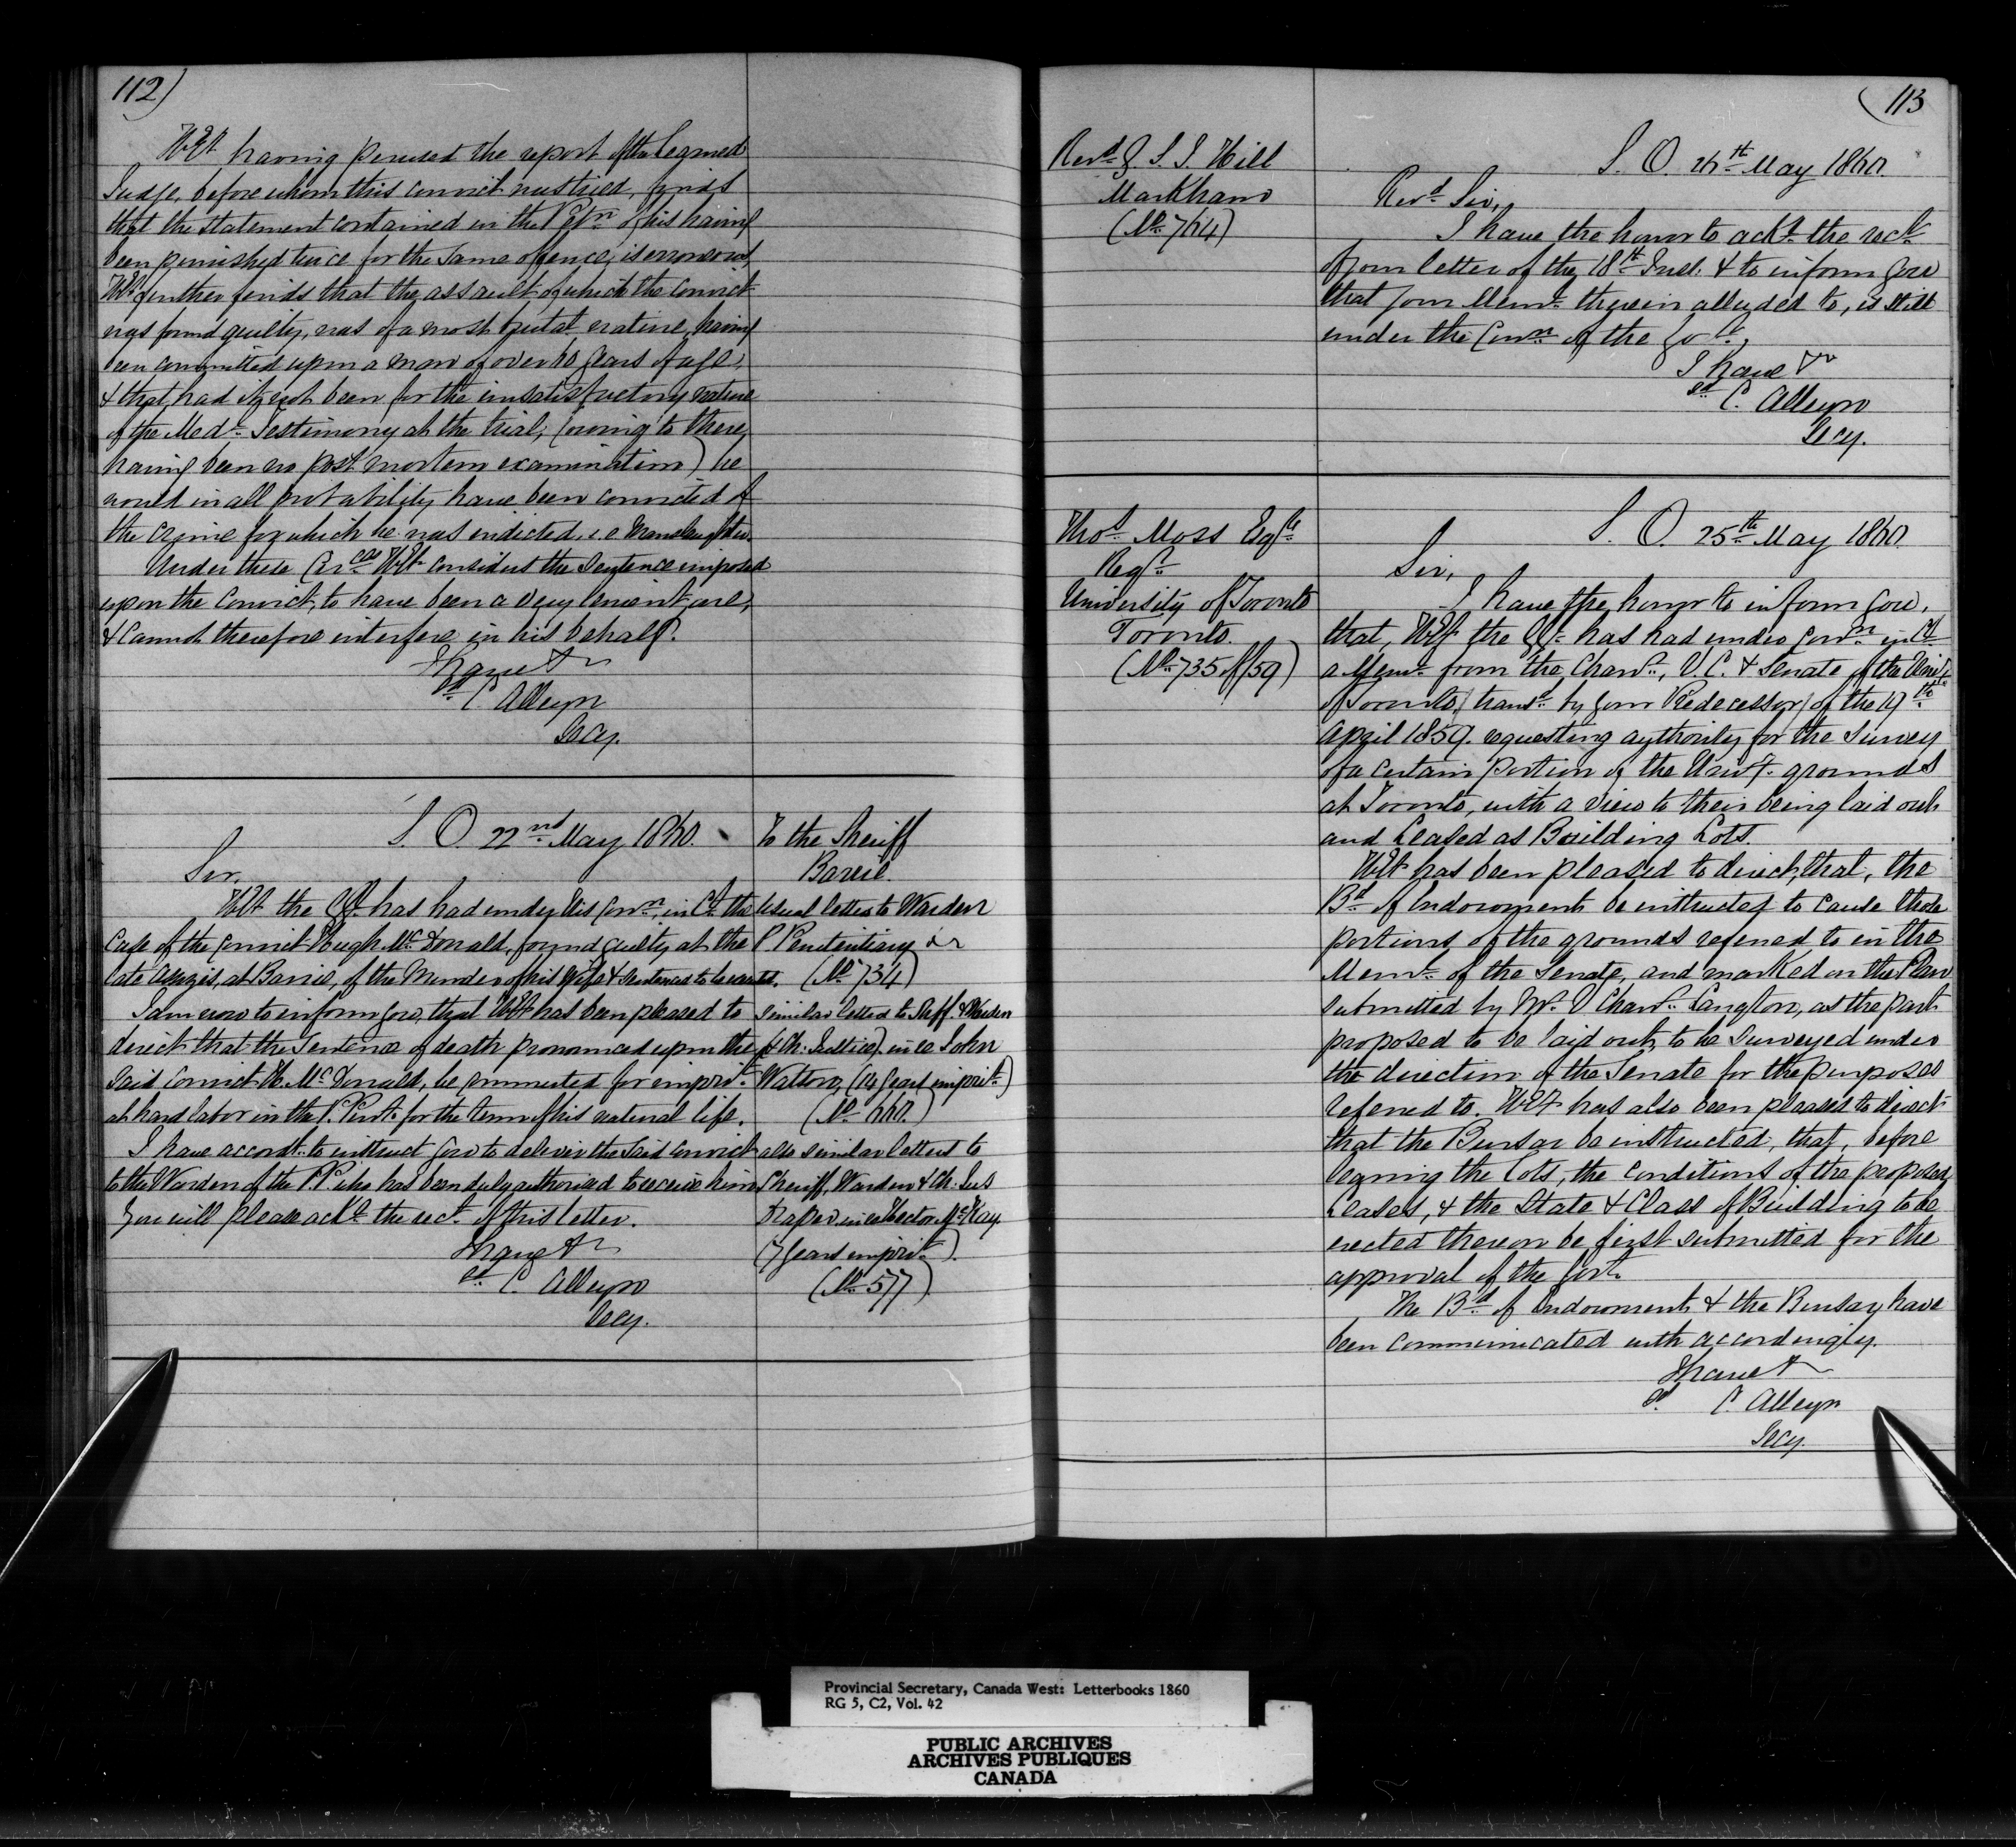 112)
H.E. having perused the report of the Learned
Judge, before whom this convict was tried, finds
that the statement contained in the Petn. of his having
been punished twice for the same offence, is erroneous,
H.E. further finds that the assault of which the Convict
was found guilty, was of a most brutal nature, having
been committed upon a man of over 60 years of age,
& that, had it not been for the unsatisfactory nature
of the Medl. Testimony at the trial, (owing to there
having been no post mortem examination) he
would in all probability have been convicted of
the crime for which he was indicted, i.e. Manslaughter.
Under these Circes. H.E. considers the Sentence imposed
upon the Convict, to have been a very lenient one,
& cannot therefore interfere in his behalf.
I have &c
sd. C. Alleyn
Secy.
S. O. 22nd May 1860.
Sir,
H.E. the G.G. has had under His Conn. in Cl. the
Case of the Convict Hugh McDonald, found guilty at the
late Assizes, at Barrie, of the Murder of his Wife & sentenced to be executd.
I am now to inform you, that H.E. has been pleased to
direct that the Sentence of death pronounced upon the
said Convict H. McDonald, be commuted for imprist.
at hard labor in the P. Peny. for the term of his natural life.
I have accordy. to instruct you to deliver the said Convict
to the Warden of the P.P. who has been duly authorised to receive him
You will please ackge. the rect. of this letter.
I have &c
sd. C. Alleyn
Secy.
To the Sheriff
Barrie.
Usual letter to Warden
P Penitentiary &c
(No. 734)
similar letters to Sheff. & Warden
(& Ch. Justice) in ce John
Walton, (14 years imprist.)
(No. 660.)
also similar letters to
Sheriff, Warden & Ch. Jus
Draper in ce Hector McKay.
(7 years imprist.)
(No. 577)
(113
Revd. G. S. J. Hill
Markham
(No. 764)
S. O. 24th May 1860.
Revd. Sir,
I have the honor to ackge. the rect.
of your letter of the 18th Inst. & to inform you
that your Meml. therein alluded to, is still
under the Conn. of the Govt.
I have &c
sd. C. Alleyn
Secy.
Thos. Moss Esqre
Regr.
University of Toronto
Toronto.
(No. 735 of/59)
S. O. 25th May 1860.
Sir,
I have the honor to inform you,
that, H.E. the G.G. has had under Conn. in Cl.
a Meml. from the Chanr., V.C. & Senate of the Univy.
of Toronto, (transd. by your Predecessor) of the 19th
April 1859. requesting authority for the Survey
of a certain portion of the Univy. grounds
at Toronto, with a view to their being laid out
and Leased as Building Lots.
H.E. has been pleased to direct, that, the
Bd. of Endowment be instructed to cause those
portions of the grounds referred to in the
Meml. of the Senate, and marked on the Plan
submitted by Mr. V Chanr. Langton, as the part
proposed to be laid out, to be Surveyed under
the direction of the Senate for the purposes
referred to. H.E. has also been pleased to direct
that the Bursar be instructed, that, before
leasing the Lots, the conditions of the proposed
Leases, & the State & Class of Building to be
erected thereon be first submitted for the
approval of the Govt.
The Bd. of Endowment & the Bursar have
been communicated with accordingly.
I have &c
sd. C. Alleyn
Secy.
Provincial Secretary, Canada West: Letterbooks 1860
RG 5, C2, Vol. 42
PUBLIC ARCHIVES
ARCHIVES PUBLIQUES
CANADA